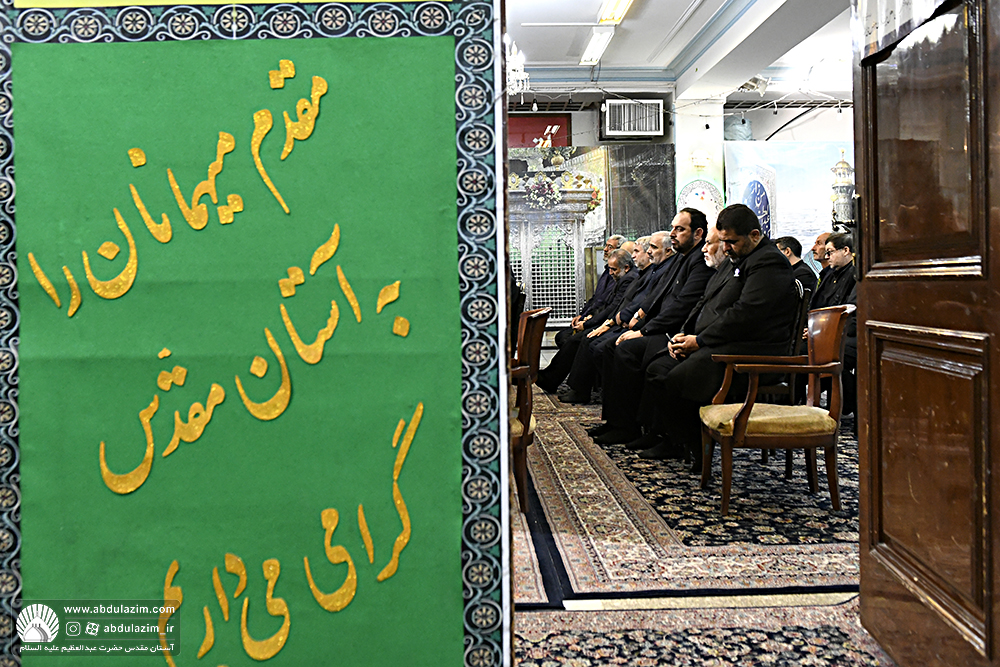 مقدم میهمانان را
به آستان مقدس
گرامی می داریم
www.abdulazim.com
abdulazim_ir
آستان مقدس حضرت عبدالعظیم علیه السلام